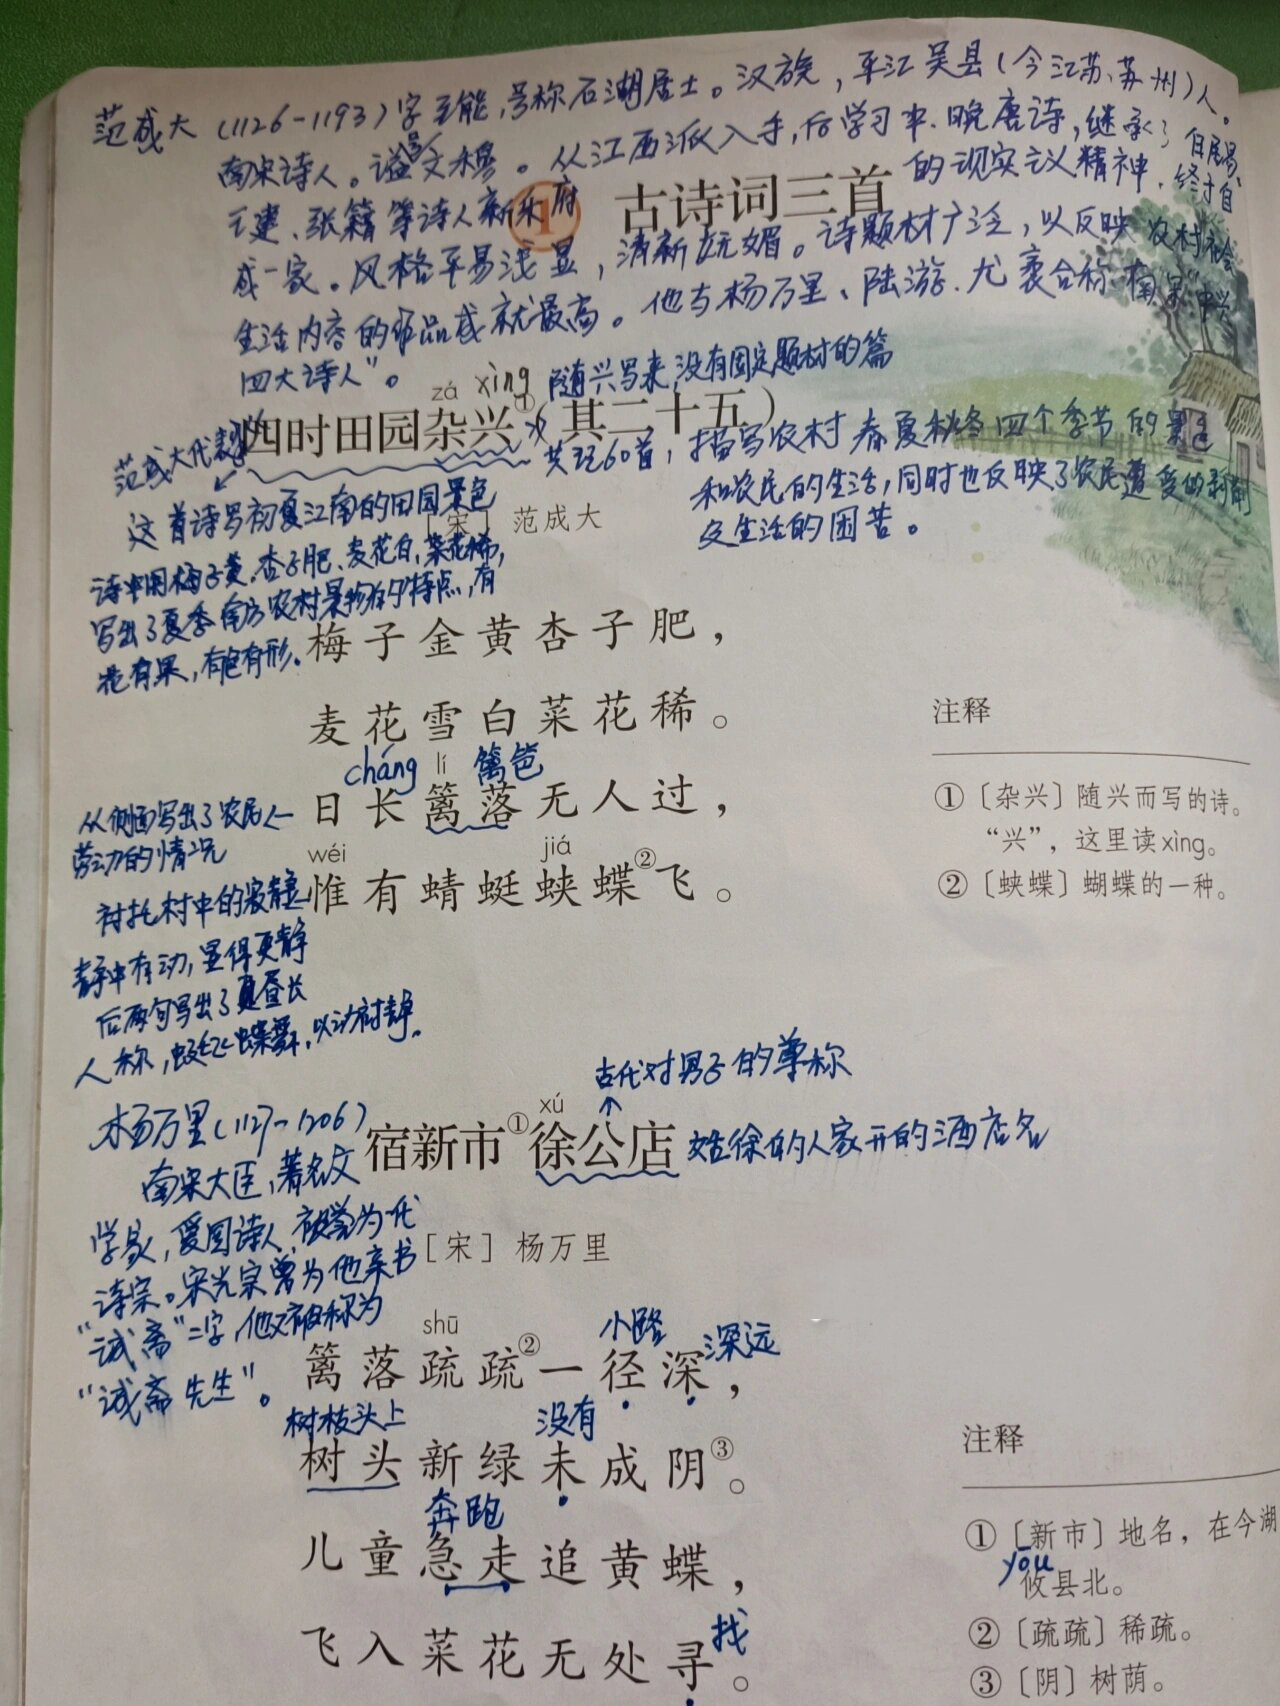 范成大(1126-1193)字至能,号称石湖居士。汉族,平江吴县(今江苏、苏州)人。
南宋诗人。谥号文穆。从江西派入手,后学习中、晚唐诗,继承了白居易、
王建、张籍等诗人新乐府的现实主义精神,终于自
① 古诗词三首
成一家。风格平易浅显,清新妩媚。诗题材广泛,以反映农村社会
生活内容的作品成就最高。他与杨万里、陆游、尤袤合称南宋"中兴
四大诗人"。
zá xìng 随兴写来,没有固定题材的篇
四时田园杂兴①(其二十五)
范成大代表
共记60首,描写农村春夏秋冬四个季节的景色
和农民的生活,同时也反映了农民遭受的剥削
及生活的困苦。
[宋] 范成大
这首诗写初夏江南的田园景色
诗中用梅子黄、杏子肥、麦花白、菜花稀,
写出了夏季南方农村景物的特点,有
花有果,有色有形。
梅子金黄杏子肥,
麦花雪白菜花稀。
cháng lí 篱笆
日长篱落无人过,
wéi jiá
惟有蜻蜓蛱蝶②飞。
从侧面写出了农民
劳动的情况
衬托村中的寂静
静中有动,显得更静
后两句写出了夏昼长
人稀,蜓飞蝶舞,以动衬静。
注释
①〔杂兴〕随兴而写的诗。
“兴”,这里读xìng。
②〔蛱蝶〕蝴蝶的一种。
古代对男子的尊称
xú
宿新市①徐公店
姓徐的人家开的酒店名
[宋] 杨万里
杨万里(1127-1206)
南宋大臣,著名文
学家,爱国诗人,被誉为一代
诗宗。宋光宗曾为他亲书
"诚斋"二字,他又被称为
"诚斋先生"。
shū 小路 深远
篱落疏疏②一径深,
树枝头上 没有
树头新绿未成阴③。
奔跑
儿童急走追黄蝶,
找
飞入菜花无处寻。
注释
①〔新市〕地名,在今湖
yōu
攸县北。
②〔疏疏〕稀疏。
③〔阴〕树荫。